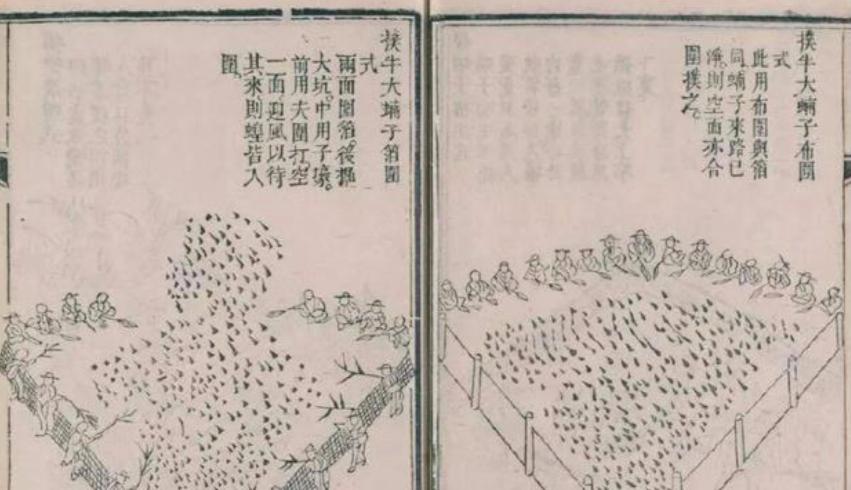 撲半大蝻子布圍
式
此用布圍與箔
同蝻子來路已
淨。則空面亦合
圍撲之。
撲半大蝻子箔圍
式
兩面圍箔。後掘
大坑。中用子壕。
前用夫圍扛空
一面迎風以待
其來則蝗皆入
圍。